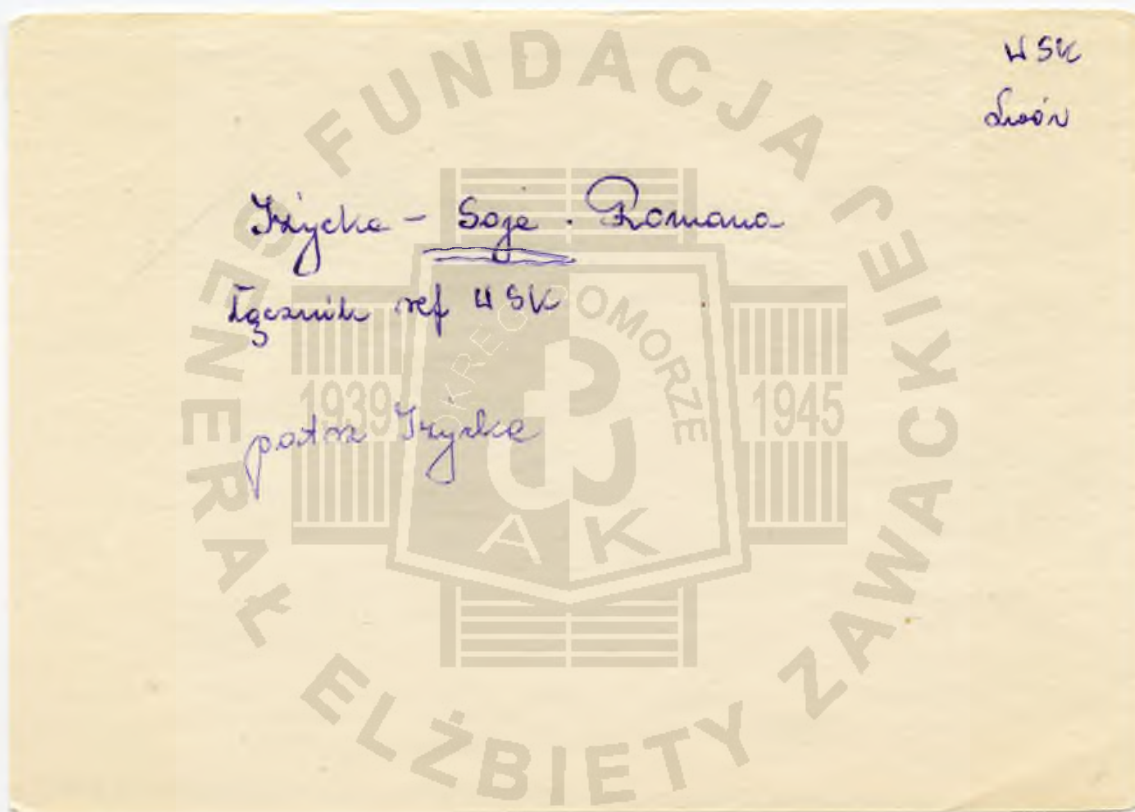 WSK
Lwów
Iżycka - Soja . Romana
Łącznik ref WSK
patrz Iżycka
FUNDACJA GENERAŁ ELŻBIETY ZAWACKIEJ
OKRĘG POMORZE
1939
1945
AK